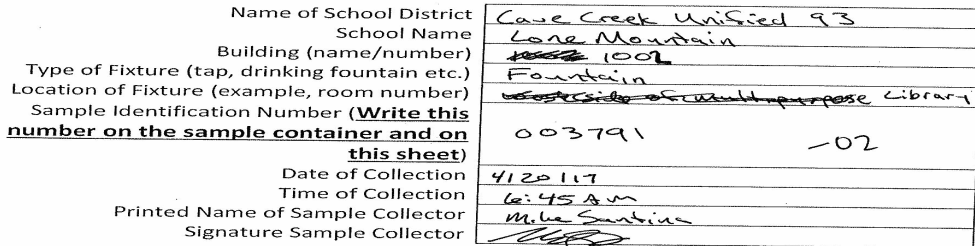 Name of School District Cave Creek Unified 93
School Name Lone Mountain
Building (name/number) 1002
Type of Fixture (tap, drinking fountain etc.) Fountain
Location of Fixture (example, room number) Library
Sample Identification Number (Write this
number on the sample container and on
this sheet) 003791 -02
Date of Collection 4/20/17
Time of Collection 6:45 AM
Printed Name of Sample Collector Mike Santina
Signature Sample Collector